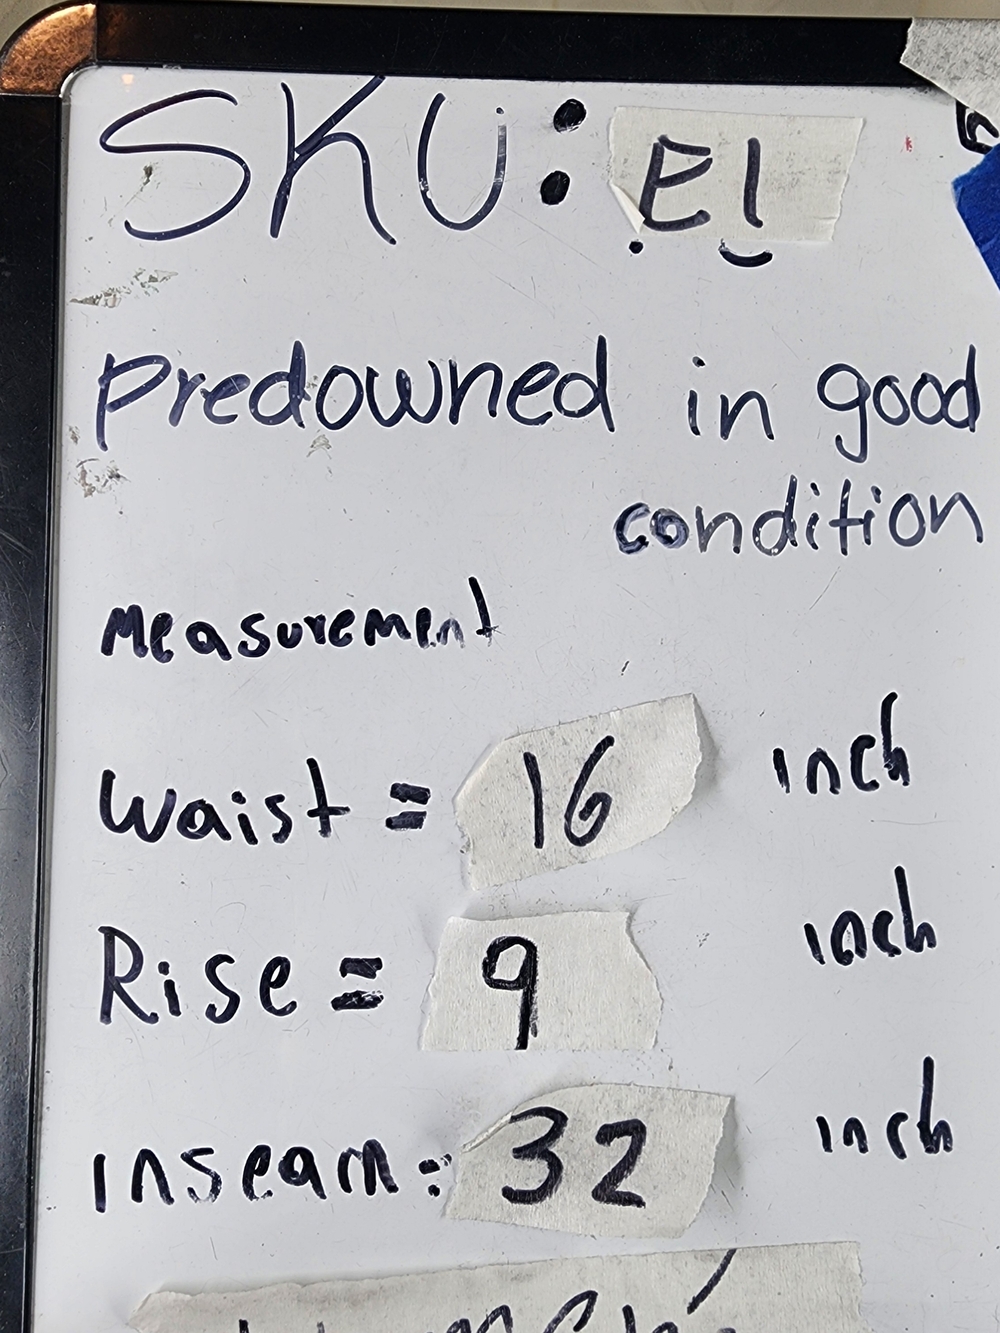 SKU: E1
predowned in good
condition
Measurement
Waist = 16 inch
Rise = 9 inch
inseam = 32 inch